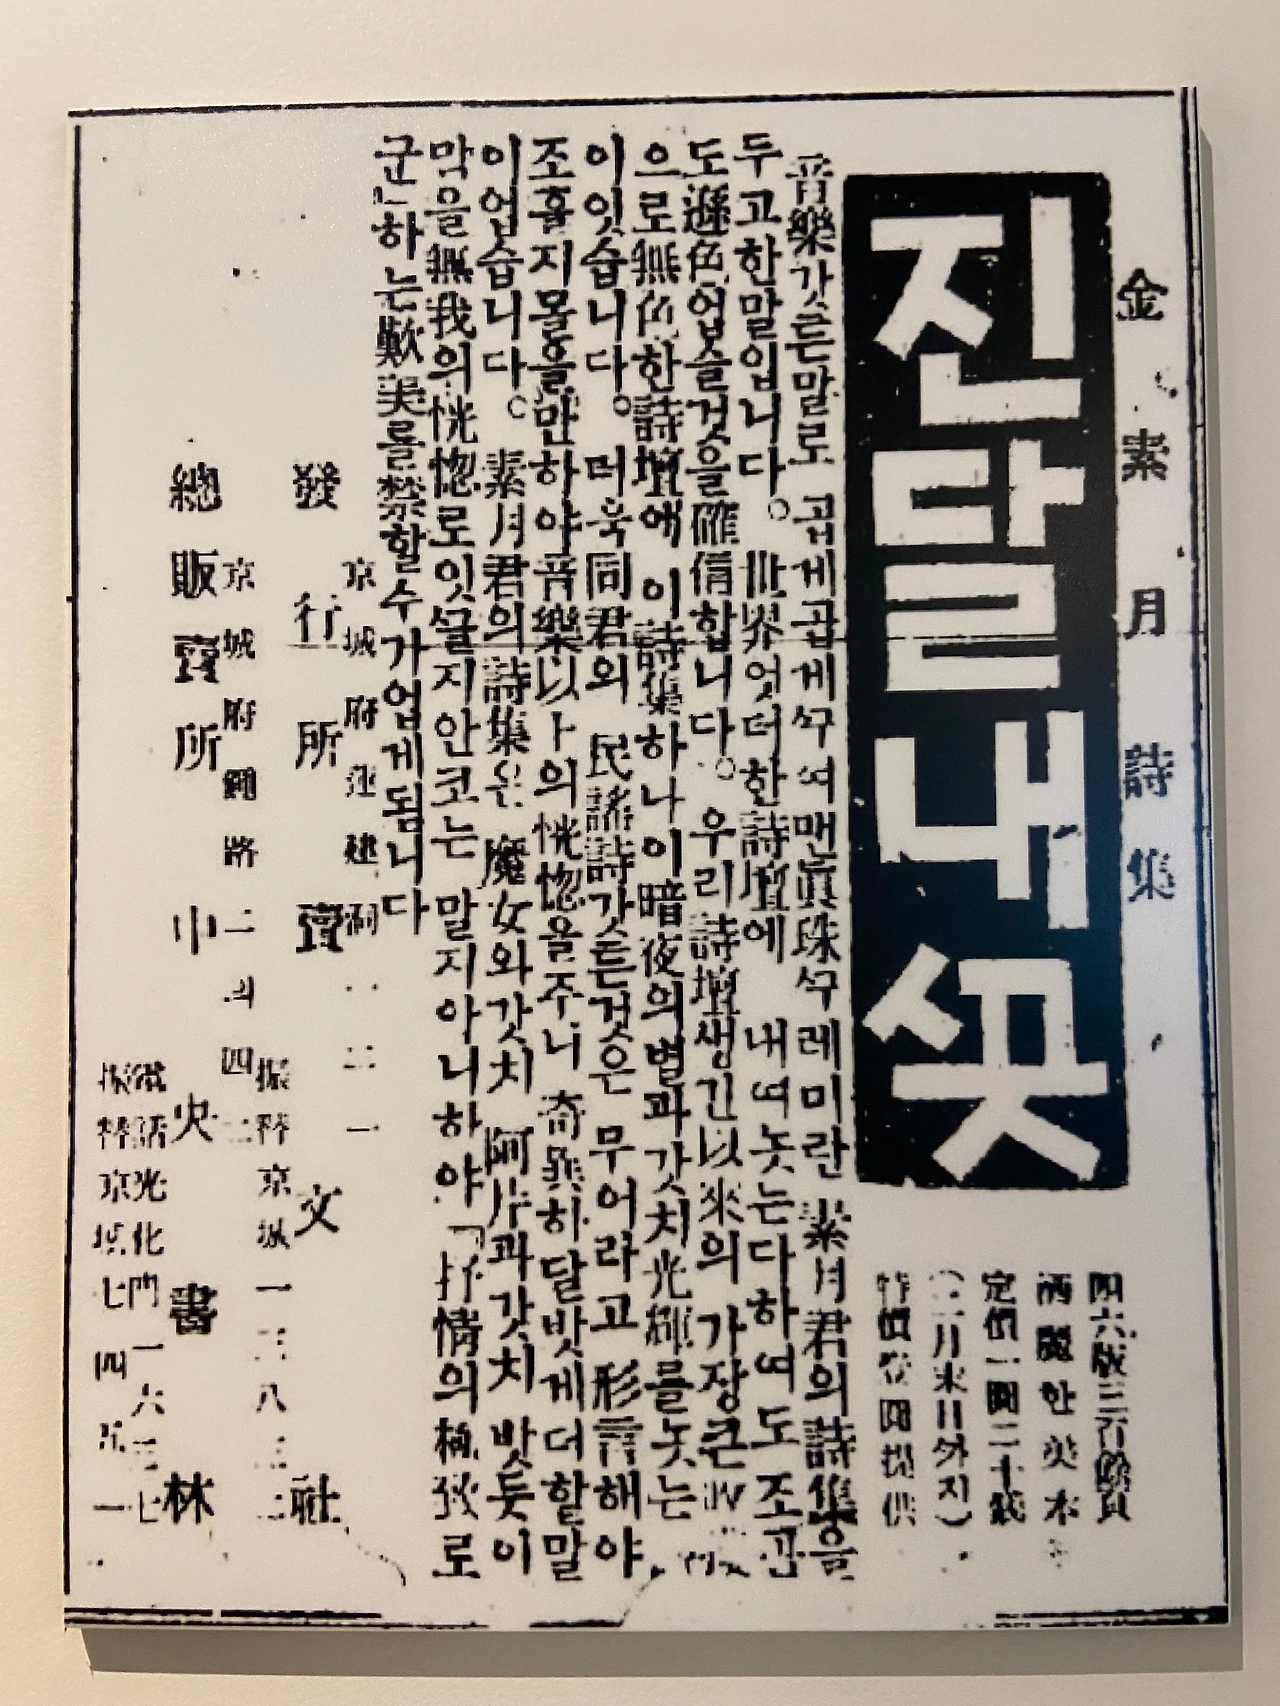 金素月詩集
진달내ᄭᅩᆺ
四六版三百餘頁
洒麗한美本
定價一圓二十錢
(二月末日外지)
特價壹圓提供
音樂갓튼말로 곱게곱게ᄭᅮ여맨眞珠ᄭᅮ레미란 素月君의詩集을
두고한말입니다。世界엇더한詩壇에 내여놋는다하여도 조곰
도遜色업슬것을確信합니다。우리詩壇생긴以來의가장큰收穫
으로無色한詩壇에 이詩集하나이暗夜의별과갓치光輝를놋는
이잇습니다。더욱同君의 民謠詩갓튼것은 무어라고形言해야
조흘지몰을만하야音樂以上의恍惚을주니 奇異히달밧게더할말
이업습니다。素月君의詩集은 魔女와갓치 阿片과갓치 밧듯이
막을無我의恍惚로잇ᄭᅳᆯ지안코는 말지아니하야「抒情의極致로
군」하는歎美를禁할수가업게됨니다
京城府蓮建洞
發行所 賣文社
振替京城一三八三二
京城府鍾路二의四二
總販賣所 中央書林
電話光化門一六三七
振替京城七四五一